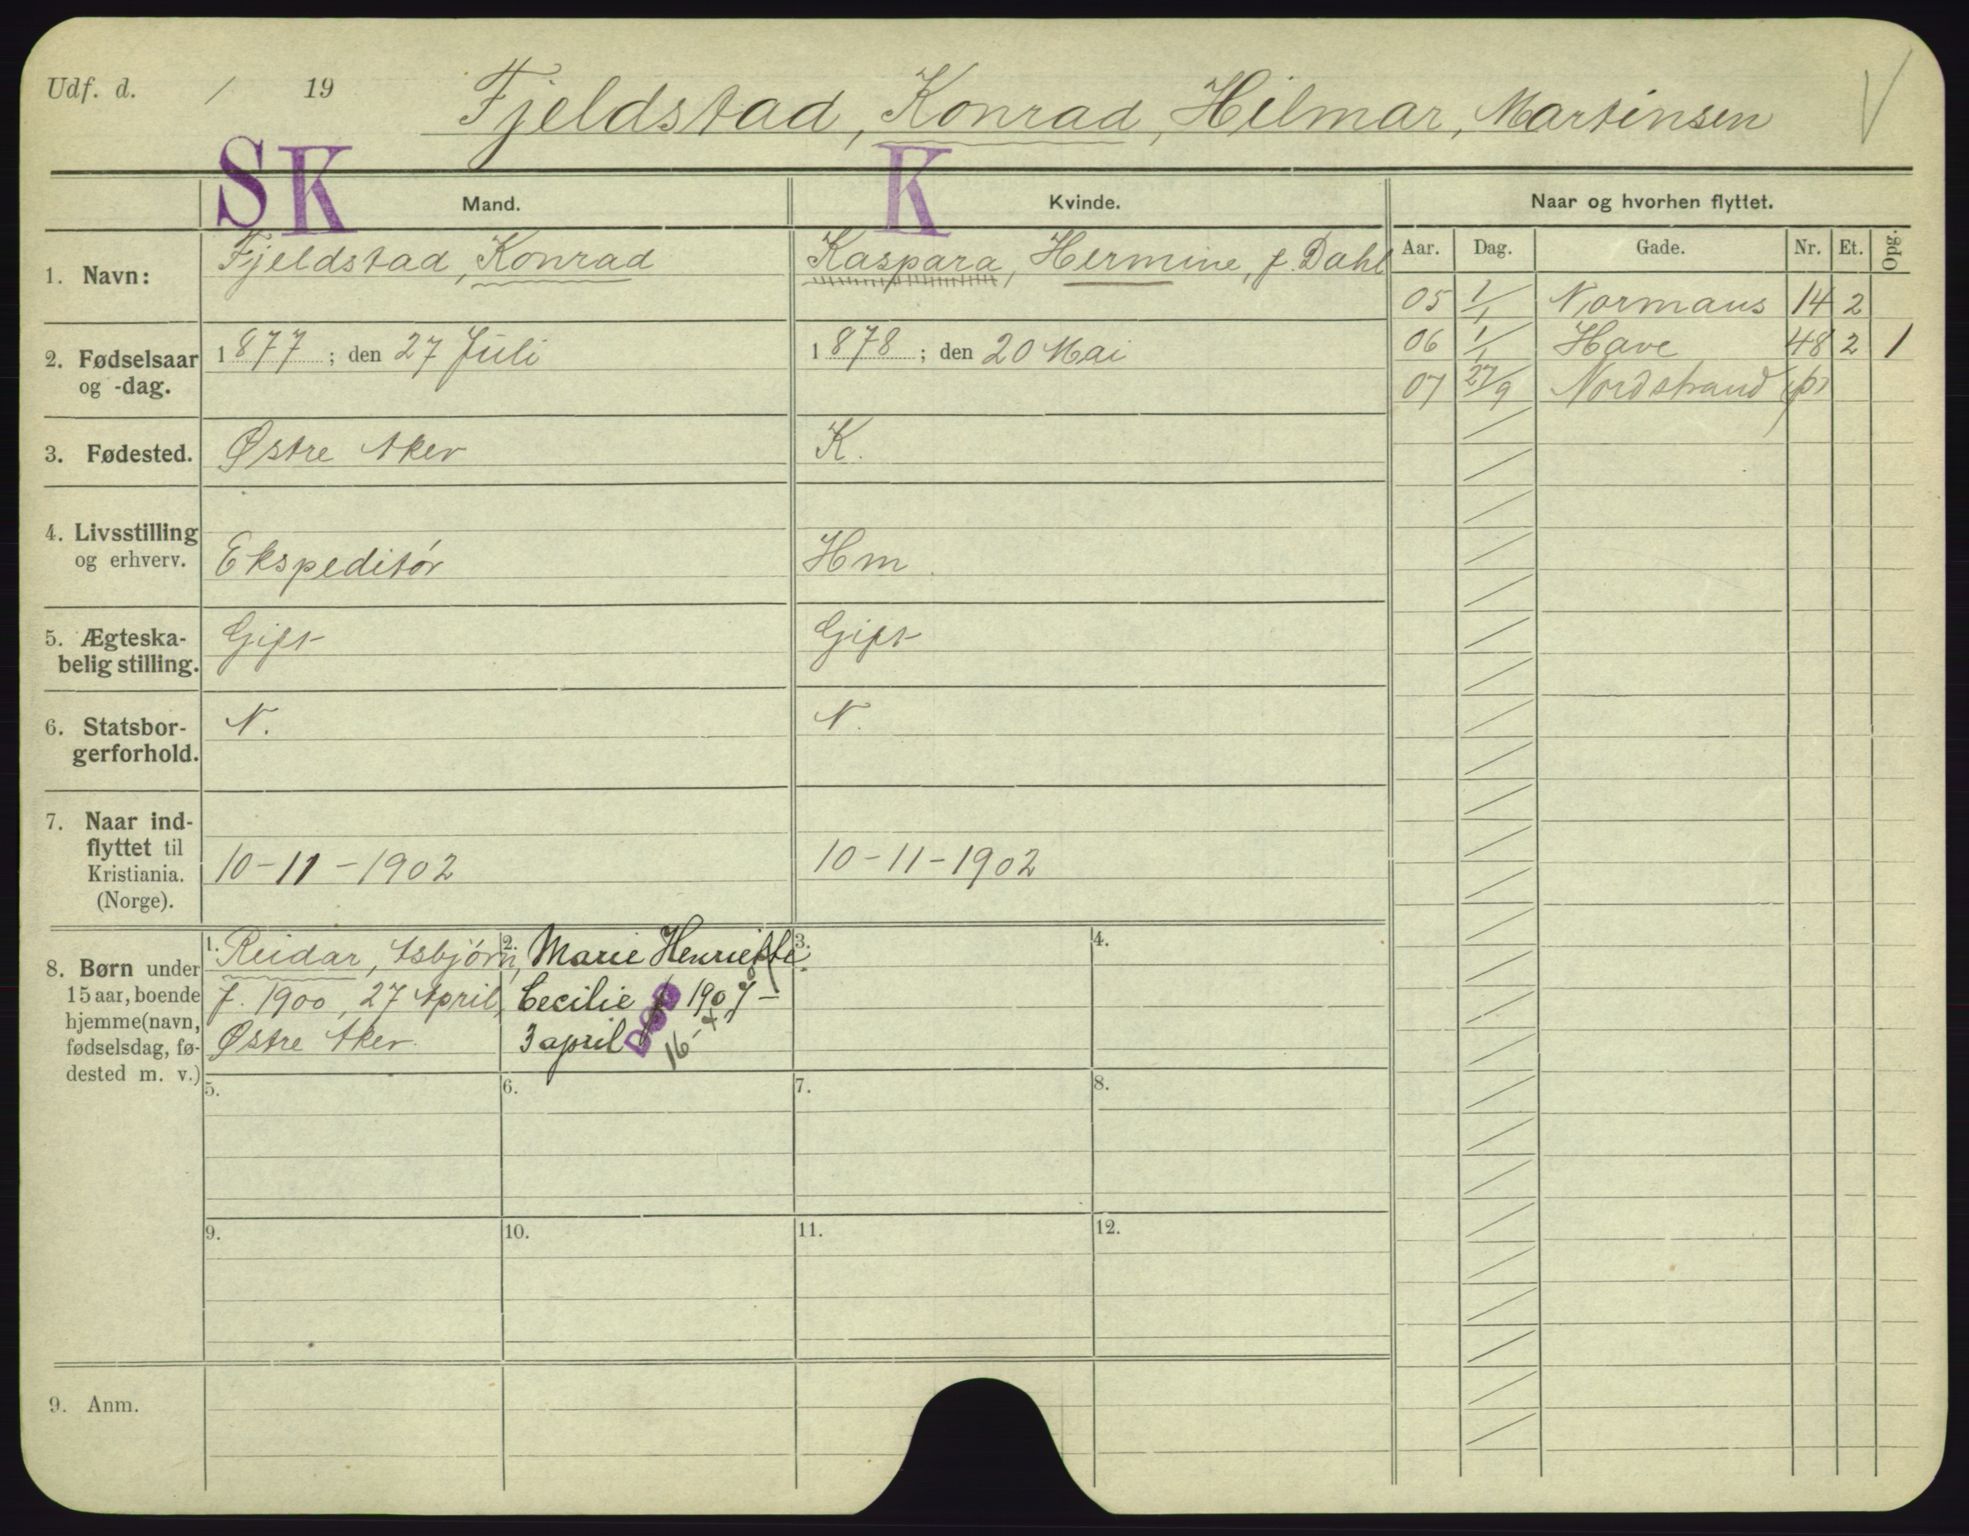 Udf. d. / 19
Fjeldstad, Konrad, Hilmar, Martinsen
V
SK
K
Mand.
Kvinde.
Naar og hvorhen flyttet.
Aar. Dag. Gade. Nr. Et. Opg.
05 1/1 Normans 14 2
06 1/1 Have 48 2 1
07 27/9 Nordstrand (p)
1. Navn:
Fjeldstad, Konrad
Kaspara, Hermine, f. Dahl
2. Fødselsaar
og -dag.
1877 ; den 27 Juli
1878 ; den 20 Mai
3. Fødested.
Østre Aker
K.
4. Livsstilling
og erhverv.
Ekspeditør
Hm
5. Ægteska-
belig stilling.
Gift
Gift
6. Statsbor-
gerforhold.
N.
N.
7. Naar ind-
flyttet til
Kristiania.
(Norge).
10-11-1902
10-11-1902
8. Børn under
15 aar, boende
hjemme (navn,
fødselsdag, fø-
dested m. v.)
1. Reidar, Asbjørn,
f. 1900, 27 April,
Østre Aker.
2. Marie Henriette
Cecilie f 1907 -
3 april DØD
16
3.
4.
5.
6.
7.
8.
9.
10.
11.
12.
9. Anm.